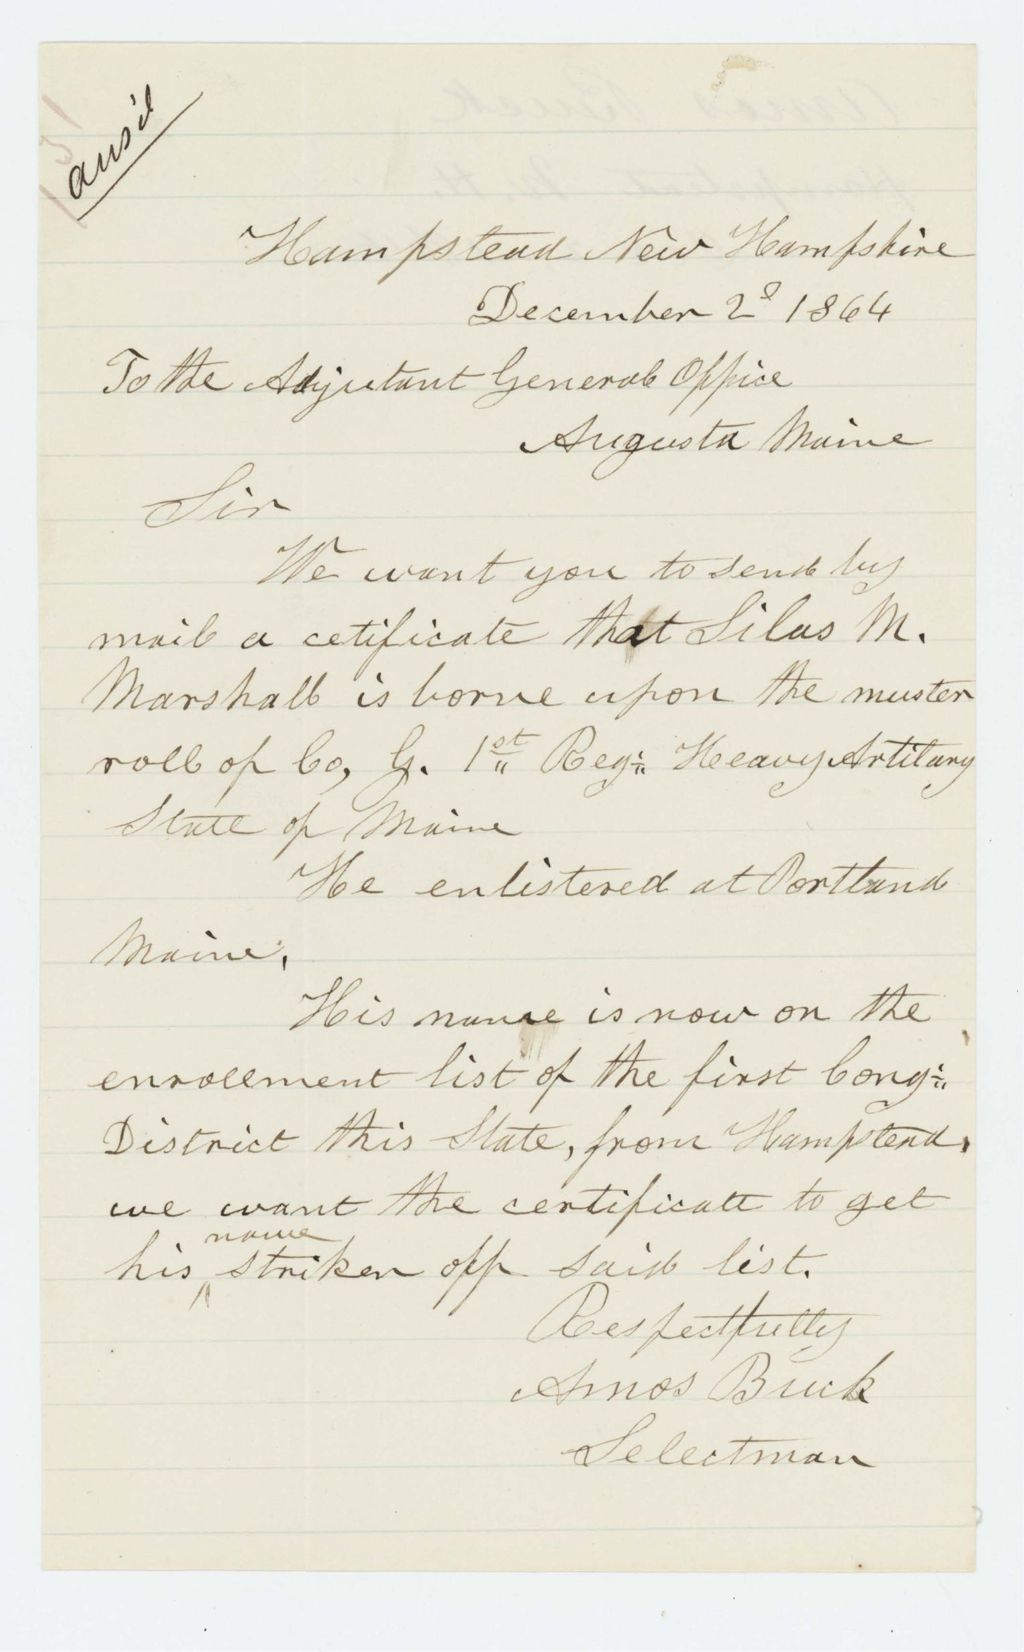 ansd
Hampstead New Hampshire
December 2d 1864
To the Adjutant General Office
Augusta Maine
Sir
We want you to send by
mail a cetificate that Silas M.
Marshall is borne upon the muster
roll of Co, G. 1st Reg:" Heavy Artilary
State of Maine
He enlistered at Portland
Maine.
His name is now on the
enrollment list of the first Cong:"
District this State, from Hampstead,
we want the certificate to get
his name striken off said list.
Respectfully
Amos Buck
Selectman